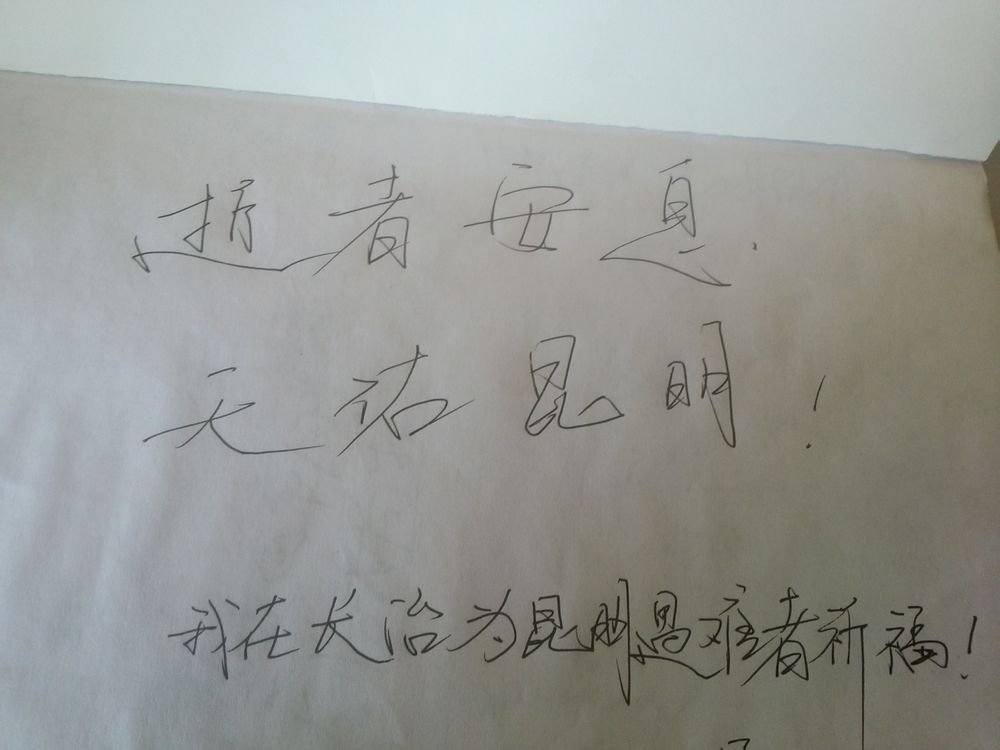 逝者安息.
天祐昆明!
我在长治为昆明遇难者祈福!